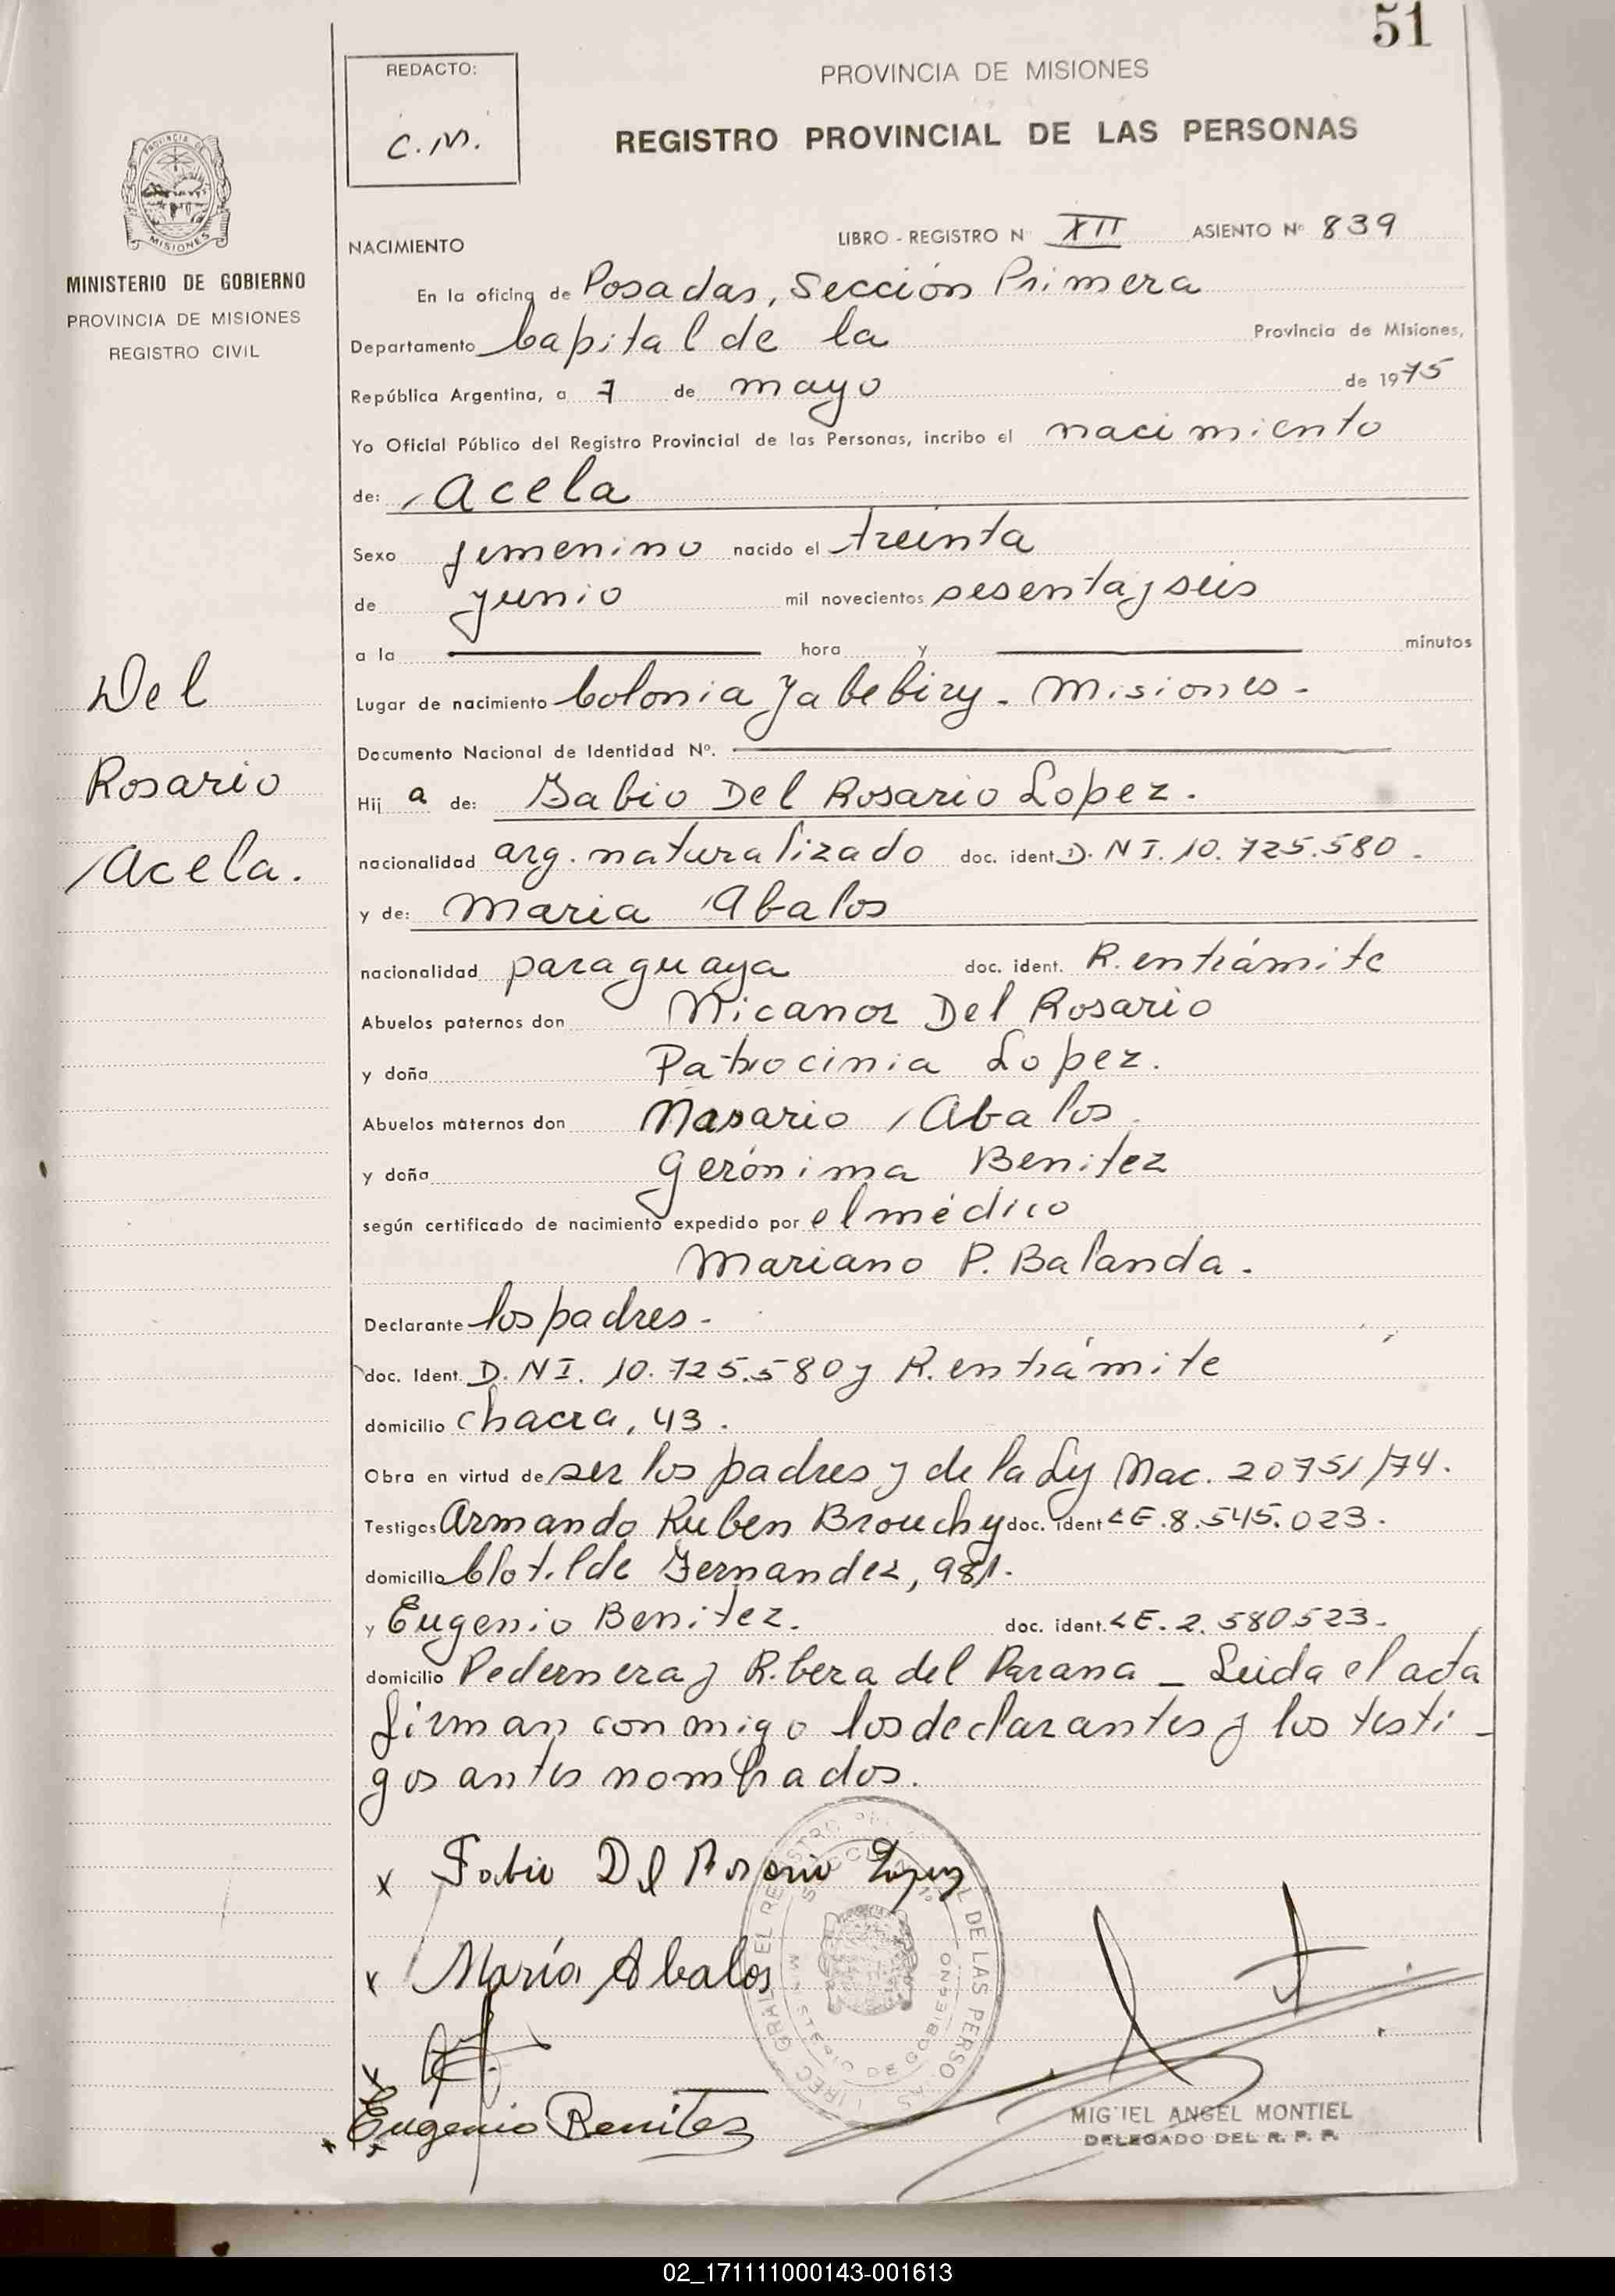 51
REDACTO:
C.M.
PROVINCIA DE MISIONES
REGISTRO PROVINCIAL DE LAS PERSONAS
PROVINCIA DE
MISIONES
MINISTERIO DE GOBIERNO
PROVINCIA DE MISIONES
REGISTRO CIVIL
NACIMIENTO
LIBRO - REGISTRO N XII ASIENTO Nº 839
En la oficina de Posadas, Sección Primera
Departamento Capital de la Provincia de Misiones,
República Argentina, a 7 de mayo de 1975
Yo Oficial Público del Registro Provincial de las Personas, incribo el nacimiento
de: Acela
Sexo femenino nacido el treinta
de junio mil novecientos sesenta y seis
a la hora y minutos
Lugar de nacimiento Colonia Yabebiry - Misiones -
Documento Nacional de Identidad Nº.
Hij a de: Fabio Del Rosario Lopez.
nacionalidad arg. naturalizado doc. ident. D.NI. 10.725.580.
y de: Maria Abalos
nacionalidad paraguaya doc. ident. R. en trámite
Abuelos paternos don Nicanor Del Rosario
y doña Patrocinia Lopez.
Abuelos maternos don Nasario Abalos.
y doña Gerónima Benitez
según certificado de nacimiento expedido por el médico
Mariano P. Balanda.
Declarante los padres.
doc. Ident. D.NI. 10.725.580 y R. en trámite
domicilio chacra, 43.
Obra en virtud de ser los padres y de la Ley Nac. 20751/74.
Testigos Armando Ruben Brouchy doc. ident LE.8.545.023.
domicilio Clotilde Fernandez, 981.
y Eugenio Benitez. doc. ident. LE.2.580523.
domicilio Pedernera y Ribera del Parana - Leida el acta
firman conmigo los declarantes y los testi-
gos antes nombrados.
Del
Rosario
Acela.
x Fabio Del Rosario Lopez
x María Abalos
x
Eugenio Benitez
MINISTERIO DE GOBIERNO
MIGUEL ANGEL MONTIEL
DELEGADO DEL R. P. P.
02_171111000143-001613